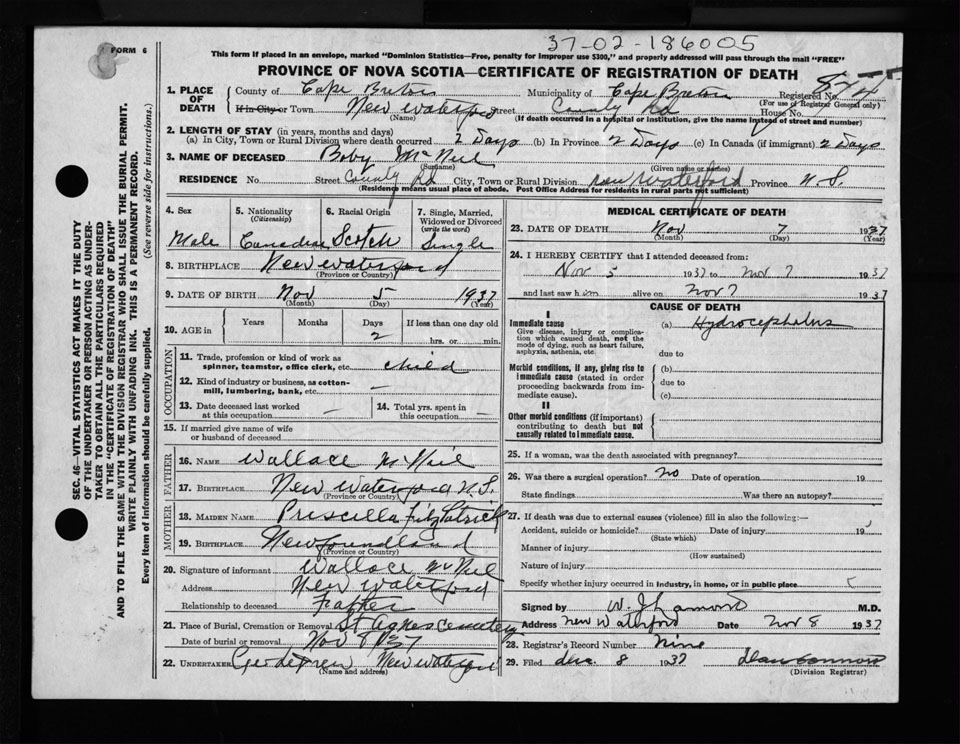 37-02-186005
FORM 6
This form if placed in an envelope, marked "Dominion Statistics—Free, penalty for improper use $300," and properly addressed will pass through the mail "FREE"
PROVINCE OF NOVA SCOTIA—CERTIFICATE OF REGISTRATION OF DEATH
874
1. PLACE OF DEATH County of Cape Breton Municipality of Cape Breton Registered No.
(For use of Registrar General only)
If in City or Town New Waterford Street County Rd House No.
(Name) (If death occurred in a hospital or institution, give the name instead of street and number)
2. LENGTH OF STAY (in years, months and days)
(a) In City, Town or Rural Division where death occurred 2 Days (b) In Province 2 Days (c) In Canada (if immigrant) 2 Days
3. NAME OF DECEASED Baby McNeil
(Surname) (Given name or names)
RESIDENCE No. Street County Rd City, Town or Rural Division New Waterford Province N.S.
(Residence means usual place of abode. Post Office Address for residents in rural parts not sufficient)
SEC. 46—VITAL STATISTICS ACT MAKES IT THE DUTY
OF THE UNDERTAKER OR PERSON ACTING AS UNDER-
TAKER TO OBTAIN ALL THE PARTICULARS REQUIRED
IN THE "CERTIFICATE OF REGISTRATION OF DEATH"
AND TO FILE THE SAME WITH THE DIVISION REGISTRAR WHO SHALL ISSUE THE BURIAL PERMIT.
WRITE PLAINLY WITH UNFADING INK. THIS IS A PERMANENT RECORD.
Every item of information should be carefully supplied. (See reverse side for instructions.)
4. Sex 5. Nationality (Citizenship) 6. Racial Origin 7. Single, Married, Widowed or Divorced (write the word)
Male Canadian Scotch Single
8. BIRTHPLACE New Waterford
(Province or Country)
9. DATE OF BIRTH Nov 5 1937
(Month) (Day) (Year)
10. AGE in Years Months Days If less than one day old
2 hrs. or min.
OCCUPATION
11. Trade, profession or kind of work as
spinner, teamster, office clerk, etc. child
12. Kind of industry or business, as cotton-
mill, lumbering, bank, etc. —
13. Date deceased last worked
at this occupation —
14. Total yrs. spent in
this occupation —
15. If married give name of wife
or husband of deceased
FATHER
16. NAME Wallace McNeil
17. BIRTHPLACE New Waterford N.S.
(Province or Country)
MOTHER
18. MAIDEN NAME Priscilla Fitzpatrick
19. BIRTHPLACE Newfoundland
(Province or Country)
20. Signature of informant Wallace McNeil
Address New Waterford
Relationship to deceased Father
21. Place of Burial, Cremation or Removal St Agnes Cemetery
Date of burial or removal Nov 8 1937
22. UNDERTAKER New Waterford
(Name and address)
MEDICAL CERTIFICATE OF DEATH
23. DATE OF DEATH Nov 7 1937
(Month) (Day) (Year)
24. I HEREBY CERTIFY that I attended deceased from:
Nov 5 1937 to Nov 7 1937
and last saw him alive on Nov 7 1937
CAUSE OF DEATH
I
Immediate cause
Give disease, injury or complica-
tion which caused death, not the
mode of dying, such as heart failure,
asphyxia, asthenia, etc.
(a) Hydrocephalus
due to
Morbid conditions, if any, giving rise to
immediate cause (stated in order
proceeding backwards from im-
mediate cause).
(b)
due to
(c)
II
Other morbid conditions (if important)
contributing to death but not
causally related to immediate cause.
25. If a woman, was the death associated with pregnancy?
26. Was there a surgical operation? No Date of operation 19
State findings Was there an autopsy?
27. If death was due to external causes (violence) fill in also the following:—
Accident, suicide or homicide? Date of injury 19
(State which)
Manner of injury
(How sustained)
Nature of injury
Specify whether injury occurred in industry, in home, or in public place
Signed by M.D.
Address New Waterford Date Nov 8 1937
28. Registrar's Record Number Nine
29. Filed Dec. 8 1937
(Division Registrar)